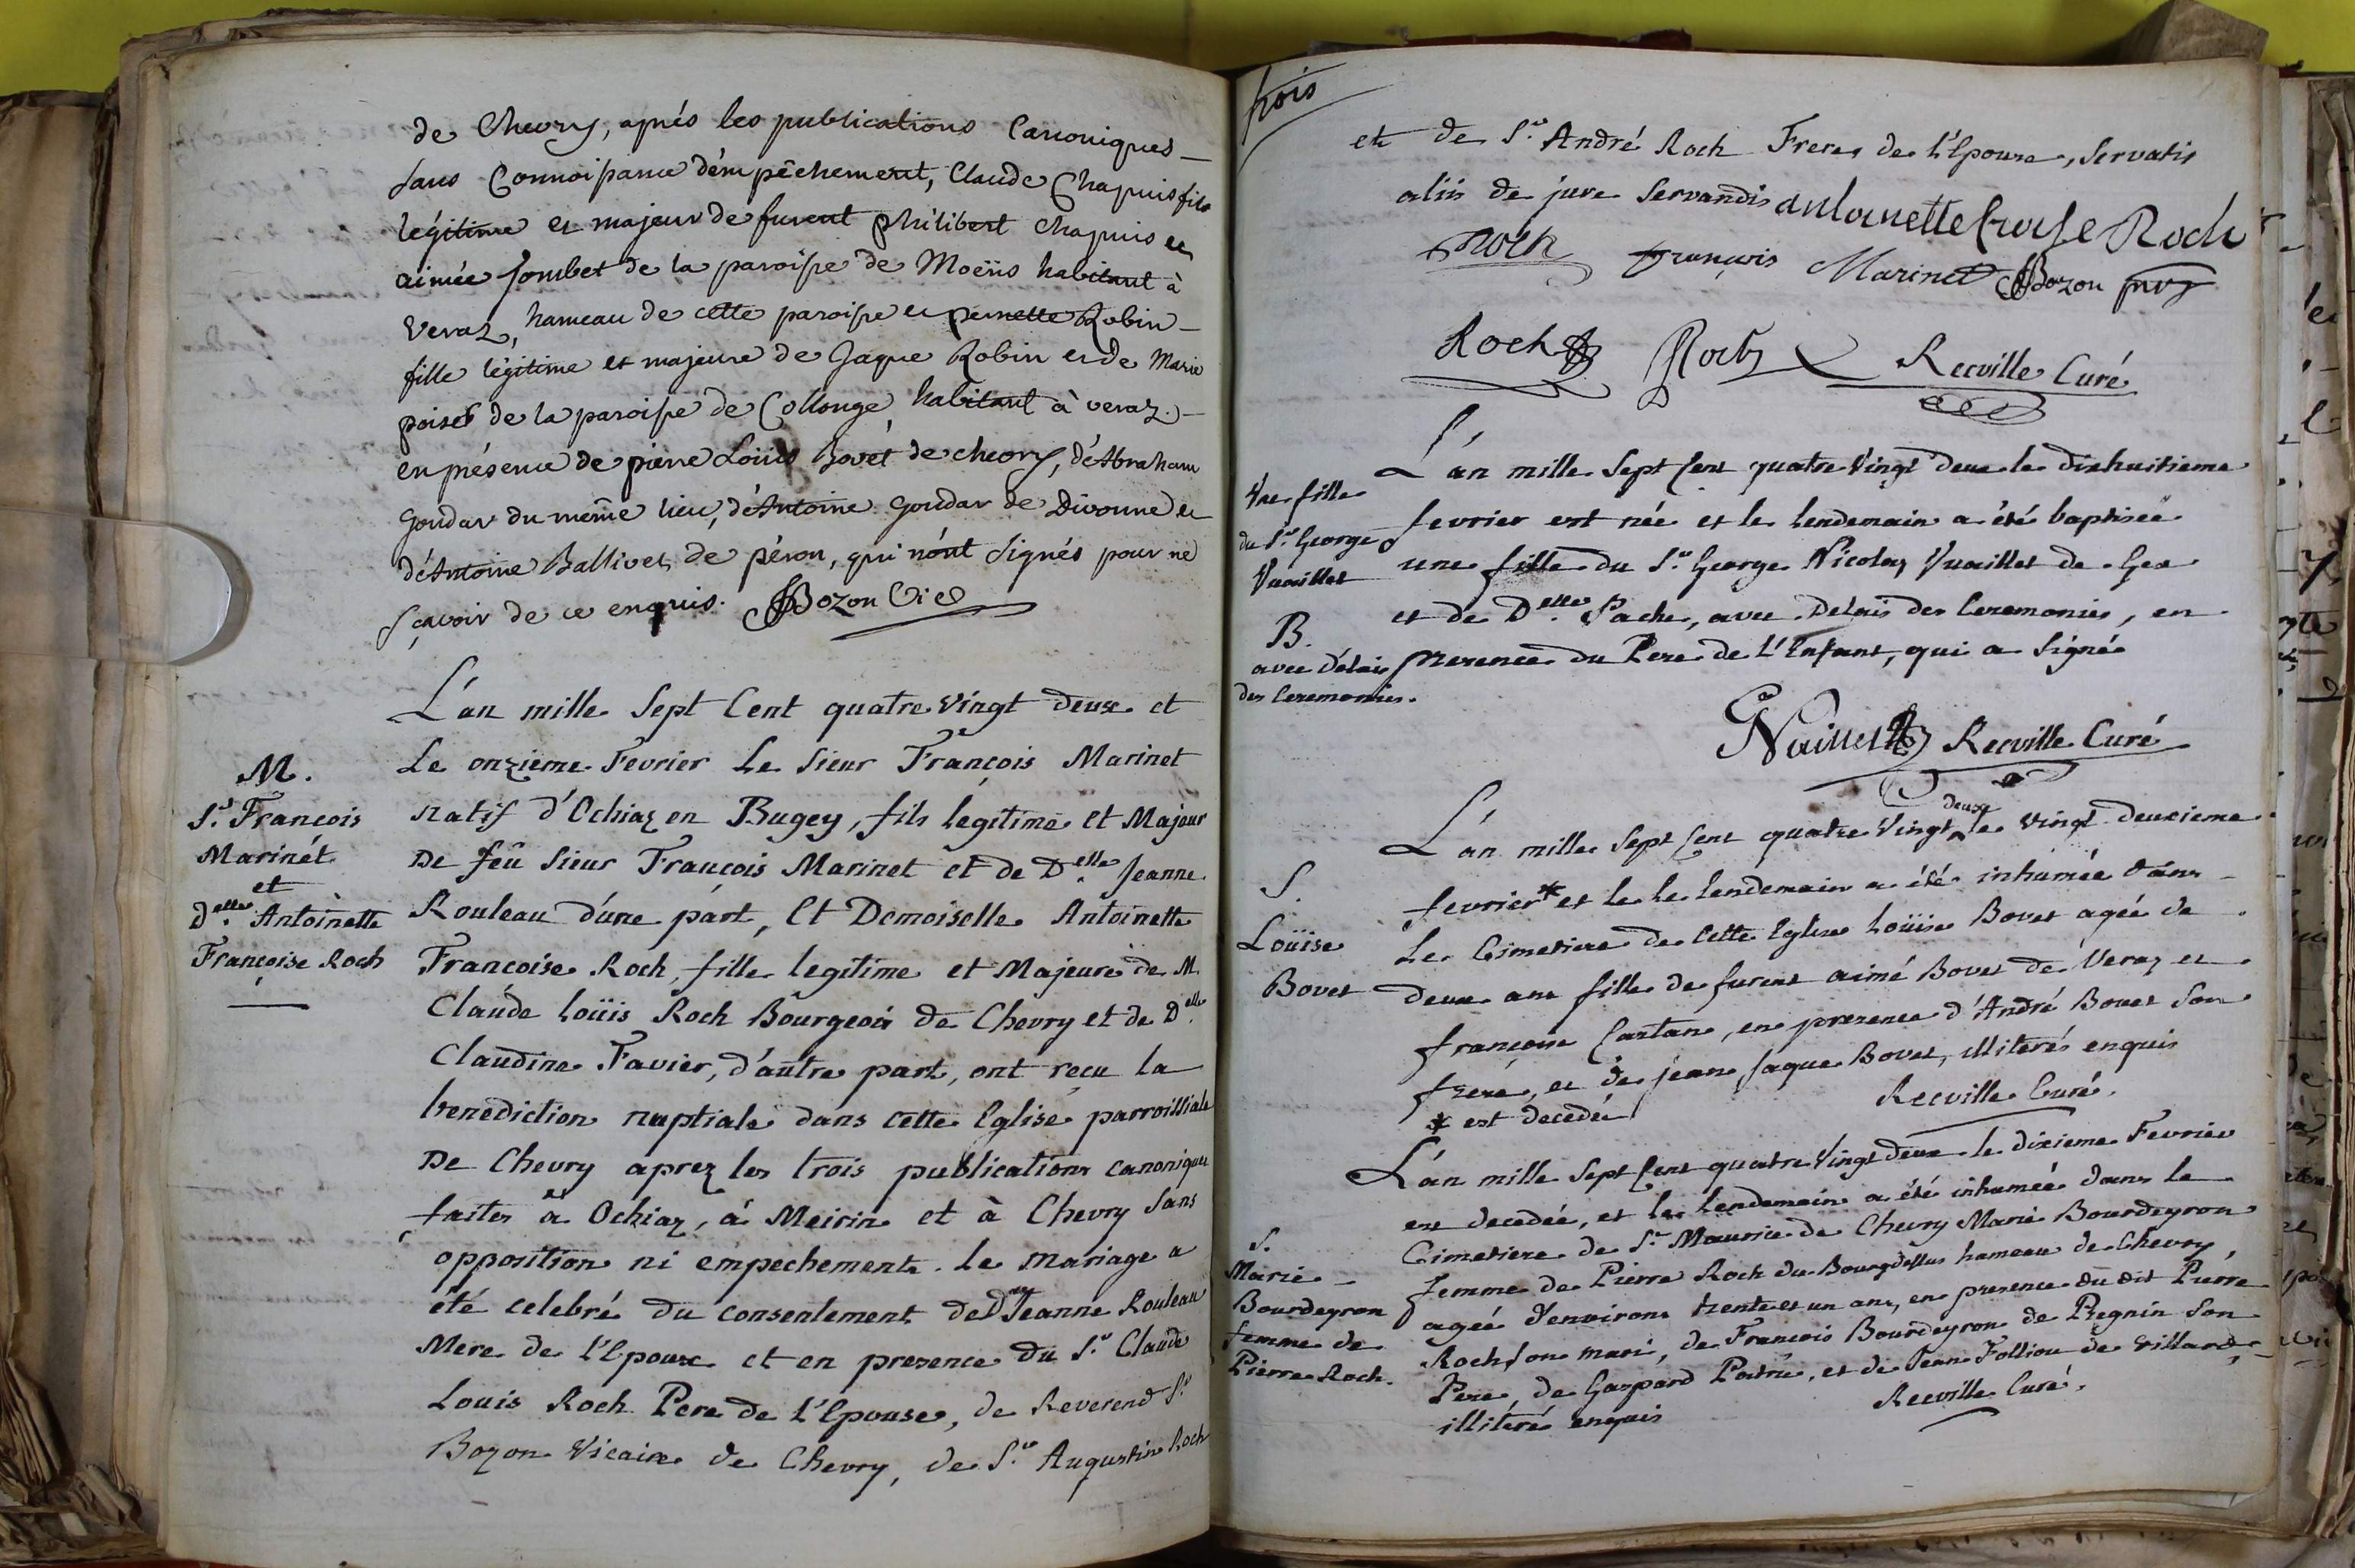 de Chevry, aprés les publications Canoniques
sans Connoissance d'émpêchement, Claude Chapuis fils
légitime et majeur de furent philibert Chapuis et
aimée Jombet de la paroisse de Moëns habitant à
veraz, hameau de cette paroisse et pernette Robin
fille légitime et majeure de Jaque Robin et de Marie
poiset de la paroisse de Collonge habitant à veraz.
en présence de pierre Loüis Bovét de chevry, d'Abraham
goudar du même lieu, d'Antoine goudar de Divonne et
d'Antoine Ballivet de péron, qui n'ont signés pour ne
sçavoir de ce enquis. Bozon Vic
M.
S.r François
Marinét
et
d.elle Antoinette
Françoise Roch
L'an mille Sept Cent quatre vingt deux et
Le onzieme Fevrier Le Sieur François Marinet
natif d'Ochiaz en Bugey, fils légitime et Majeur
De feû Sieur François Marinet et de D.elle Jeanne
Rouleau d'une part, Et Demoiselle Antoinette
Françoise Roch, fille legitime et Majeure de M.
Claude Loüis Roch Bourgeois de Chevry et de D.elle
Claudine Favier, d'autre part, ont reçu la
benediction nuptiale dans cette Eglise parroissiale
De Chevry aprez les trois publications canoniques
faites à Ochiaz, à Meirin et à Chevry Sans
opposition ni empechement. Le mariage a
été celebré du consentement de D.elle Jeanne Rouleau
Mere de L'Epoux et en presence du S.r Claude
Louis Roch Pere de L'Epouse, de Reverend S.r
Bozon Vicaire de Chevry, de S.r Augustin Roch
trois
et de S.r André Roch Freres de L'Epouse, Servatis
aliis de jure Servandis antoinette Roch
Roch françois Marinet Bozon
Roch Roch Recville Curé
Une fille
du S.r George
Vuaillet
B.
avec Délais
des Ceremonies.
L'an mille Sept Cent quatre Vingt deux le dixhuitieme
fevrier est née et le lendemain a été baptisée
une fille du S.r George Nicolaz Vuaillet de Gex
et de D.elle Pache, avec Delais des Ceremonies, en
presence du Pere de L'Enfant, qui a Signé
GNVuaillet Recville Curé
S.
Loüise
Bovet
L'an mille Sept Cent quatre Vingt deux le vingt deuxieme
fevrier * et le le lendemain a été inhumée dans
Le Cimetiere de Cette Eglise Loüise Bovet agée de
deux ans fille de furent aimé Bovet de Veraz et
françoise Cartan, en presence d'André Bovet Son
frere, et de jean Jaque Bovet, illiterés enquis
* est decedée Recville Curé.
S.
Marie
Bourdeyron
femme de
Pierre Roch.
L'an mille Sept Cent quatre Vingt deux le dixieme Fevrier
est decedée, et le lendemain a été inhumée dans le
Cimetiere de S.t Maurice de Chevry Marie Bourdeyron
femme de Pierre Roch du Bourgdessus hameau de Chevry,
agée d'environs trente et un ans, en presence du dit Pierre
Roch son mari, de François Bourdeyron de Pregnin Son
Pere, de Gaspard Patru, et de Jean Folliou de villard,
illiterés enquis Recville Curé.